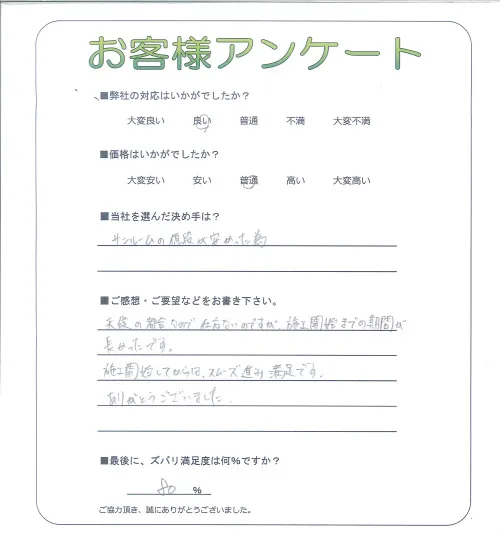 お客様アンケート
■弊社の対応はいかがでしたか？
大変良い 良い 普通 不満 大変不満
■価格はいかがでしたか？
大変安い 安い 普通 高い 大変高い
■当社を選んだ決め手は？
サンルームの値段が安かった為
■ご感想・ご要望などをお書き下さい。
天候の都合なので仕方ないのですが、施工開始までの期間が
長かったです。
施工開始してからは、スムーズ進み満足です。
ありがとうございました。
■最後に、ズバリ満足度は何％ですか？
80 %
ご協力頂き、誠にありがとうございました。